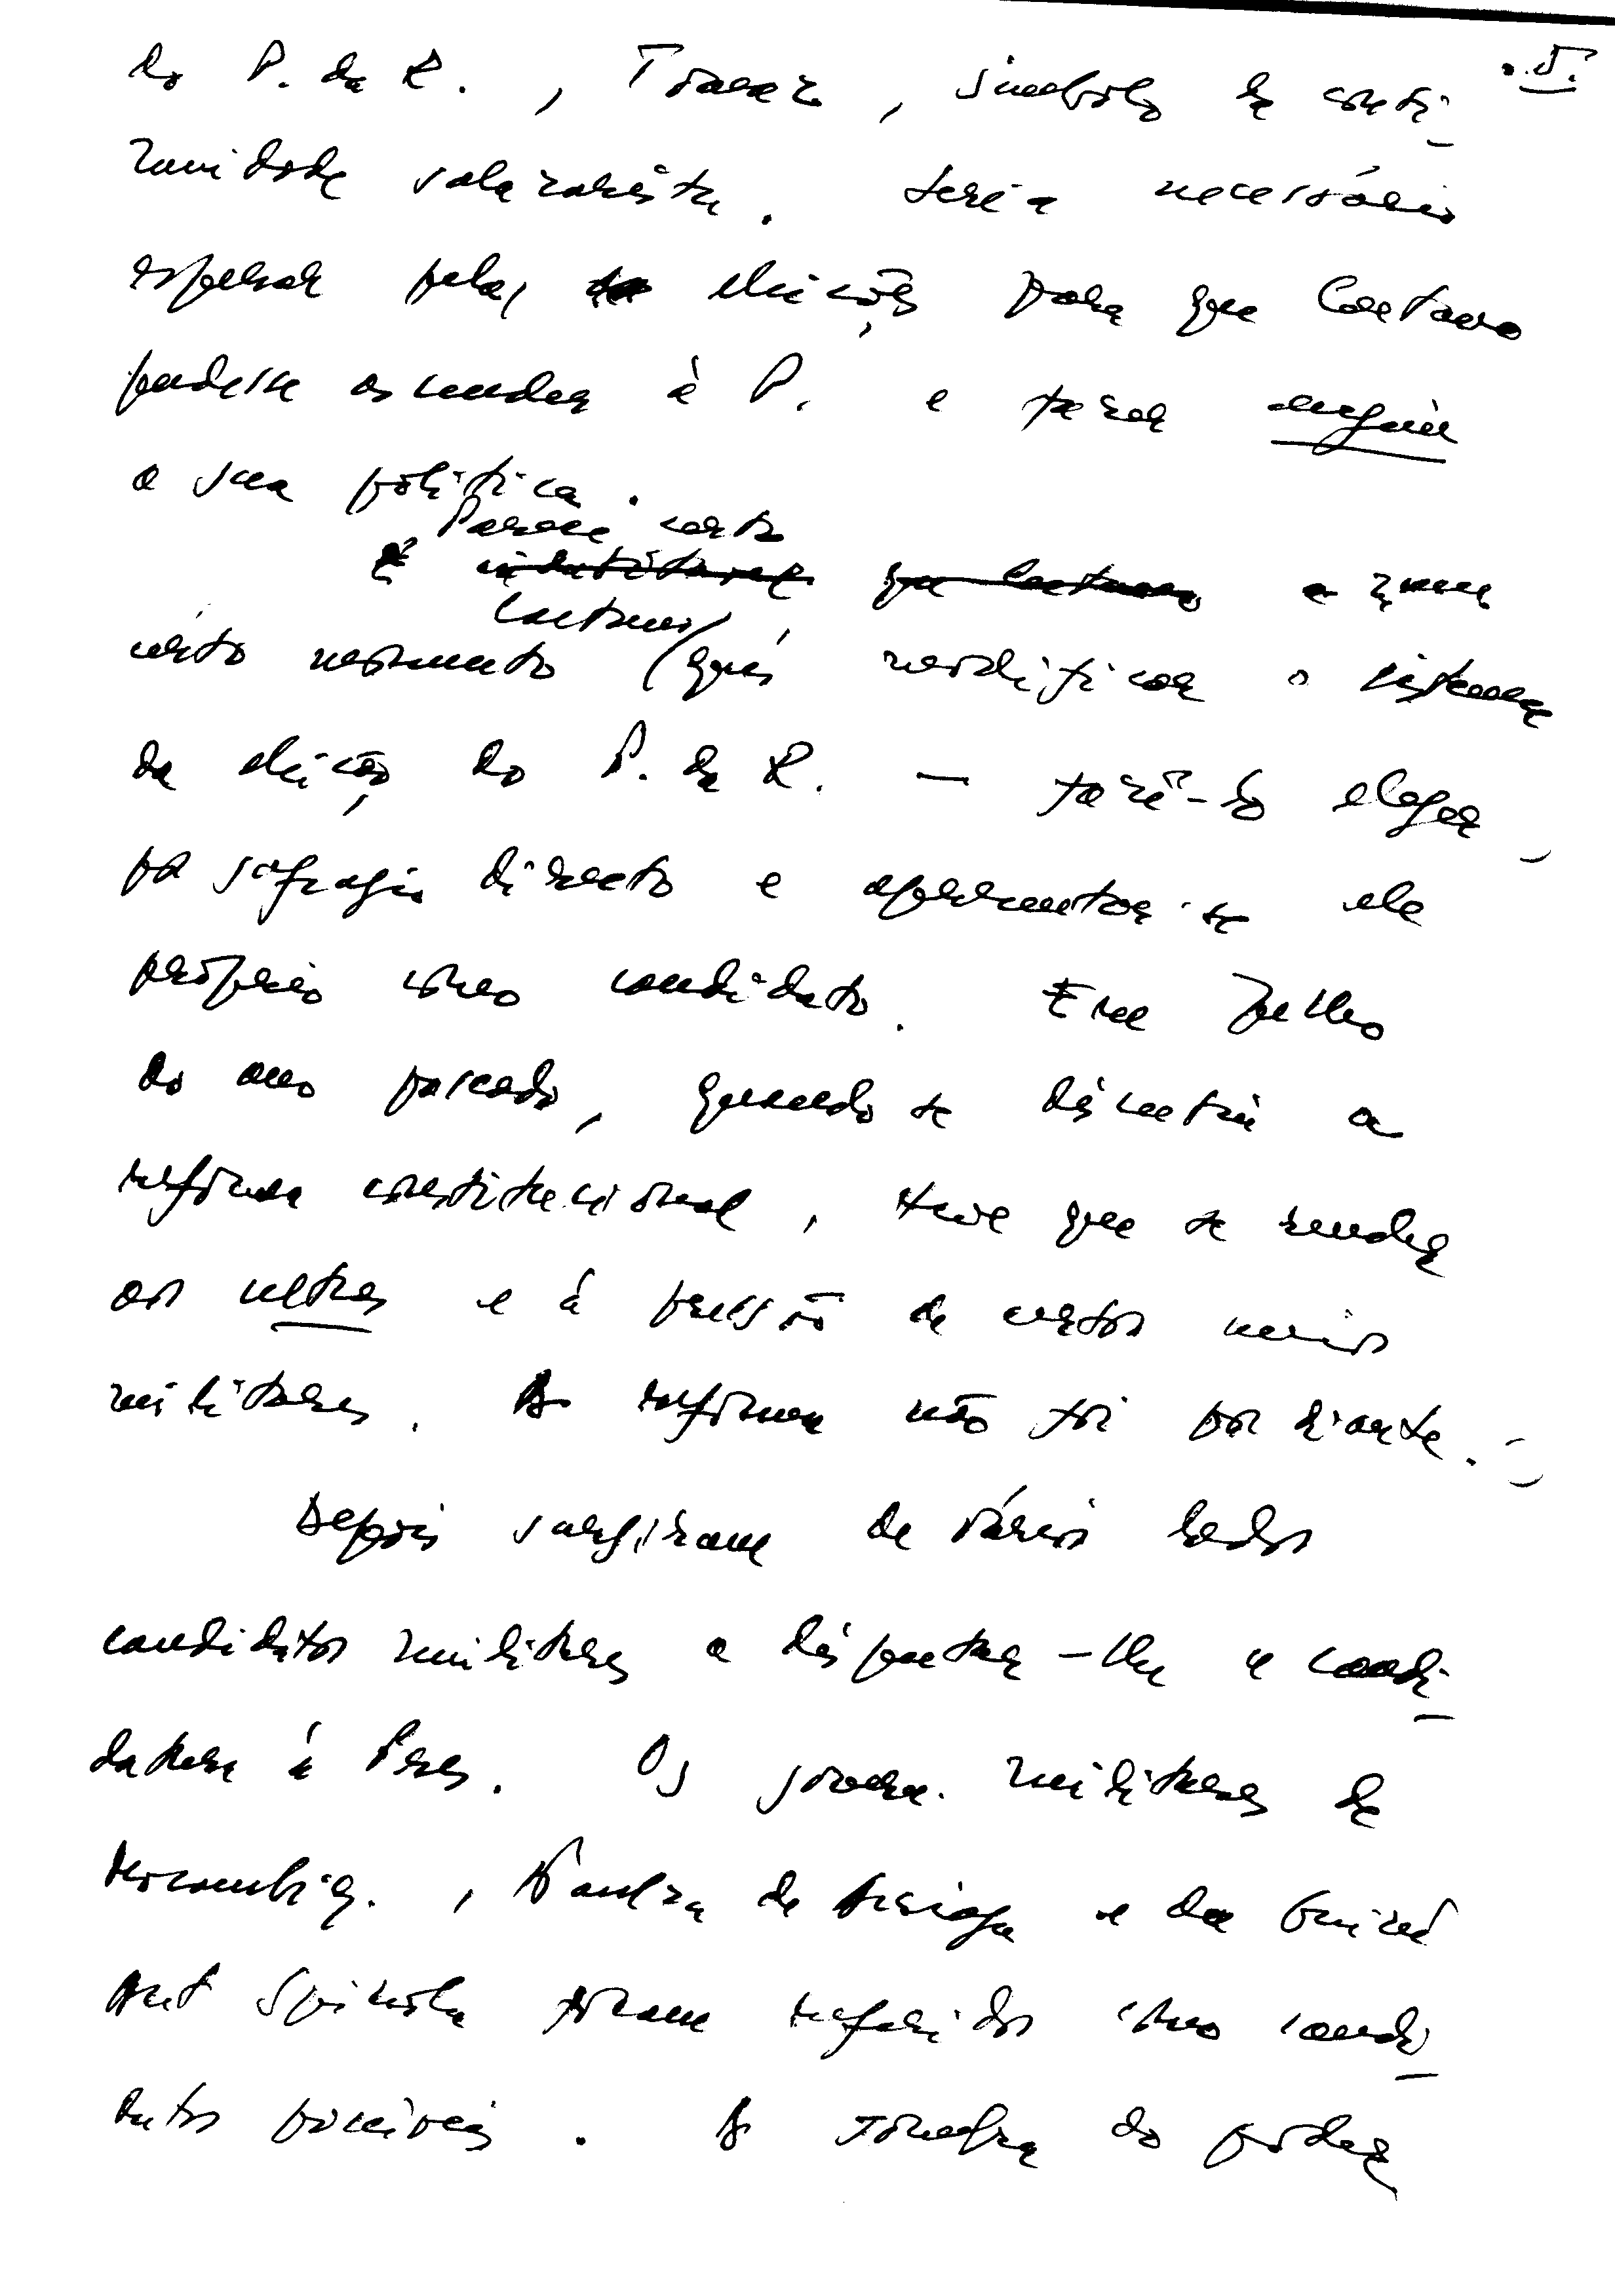 .5.
do P. da R., Tomaz, símbolo da conti-
nuidade salazarista. Seria necessário
esperar pelas eleições para que Caetano
pudesse ascender à P. e fazer
a sua política.
Parece certo
É indubitável que Caetano a
Caetano
certo momento quis modificar o sistema
da eleição do P. da R. — fazê-lo eleger
por sufragio directo e apresentar-se ele
próprio como candidato. Em Julho
do ano passado, quando se discutiu a
reforma constitucional, teve que se render
aos ultras e à pressão de certos meios
militares. A reforma não foi por diante.
Depois surgiram de vários lados
candidatos militares a disputar-lhe a candi-
datura à Pres. Os govern. militares de
Moçambiq., Kaulza de Arriaga e da Guiné
Ant Spinola foram referidos como candi-
datos possíveis. A do poder